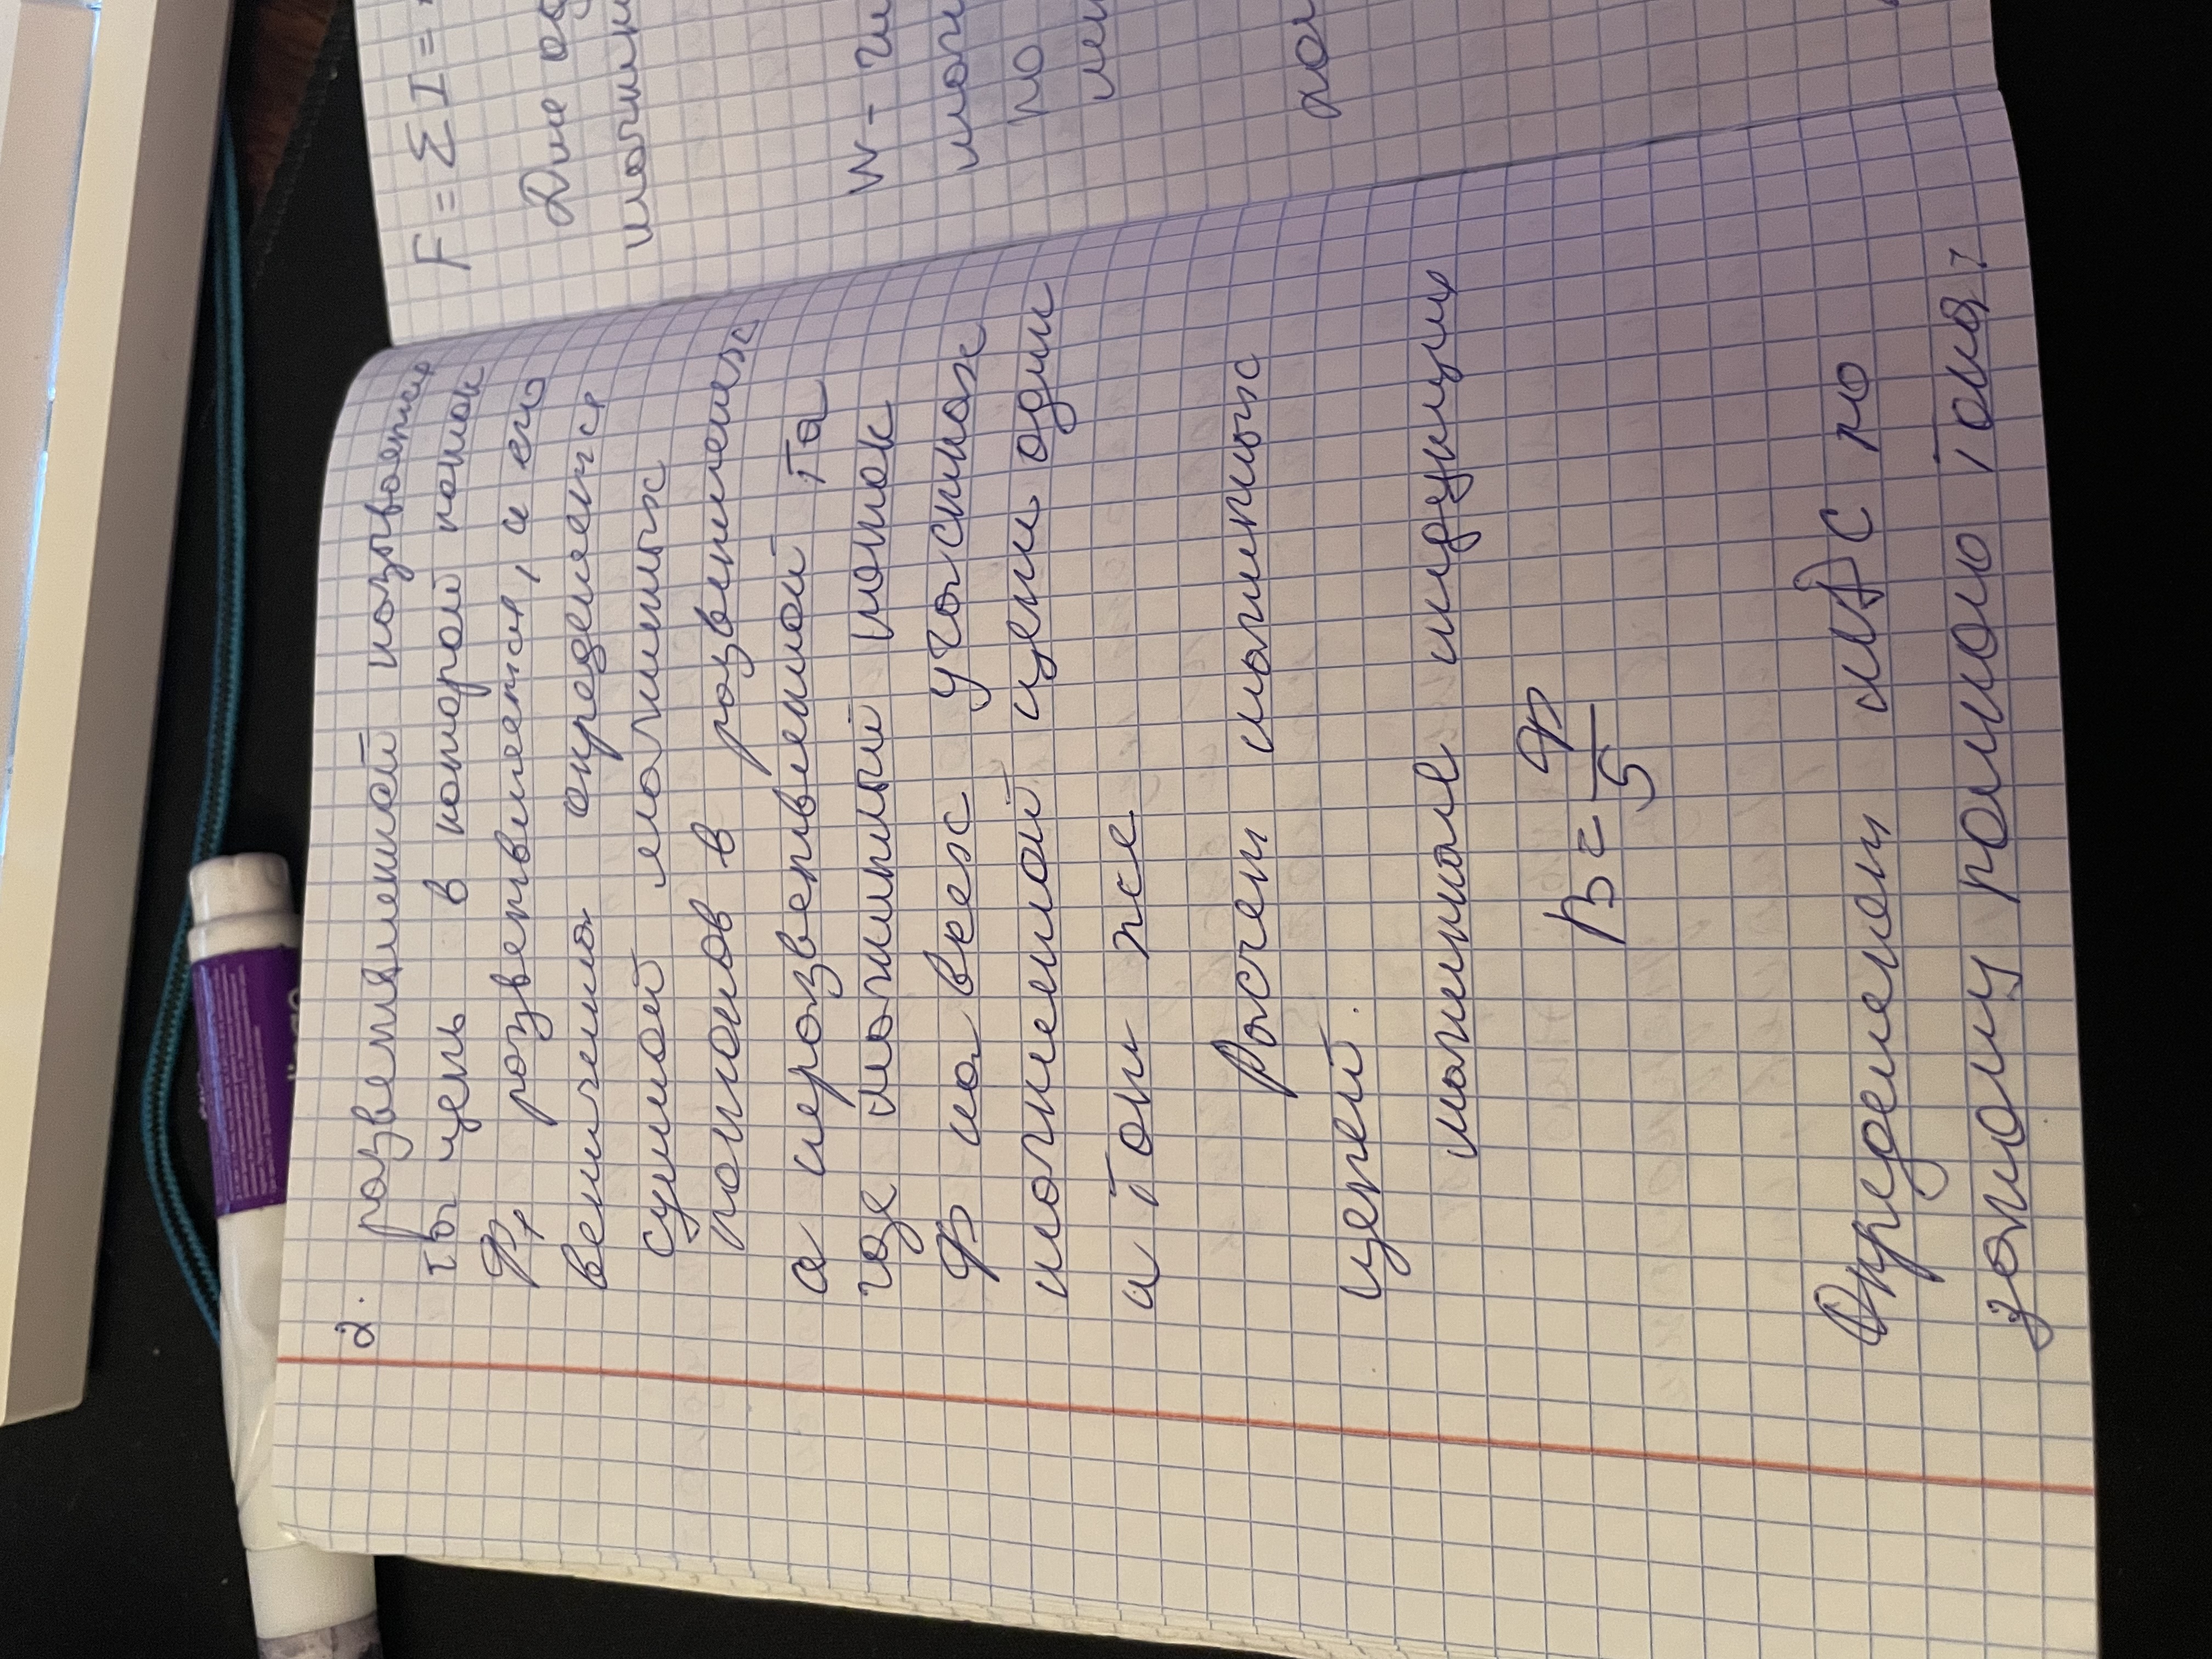 2. разветвленной называется
та цепь в которой поток
Ф, разветвляется, а его
величина определяется
суммой магнитных
потоков в разветвлениях
а неразветвленной та
где магнитный поток
Ф на всех участках
магнитной цепи один
и тот же
Расчет магнитных
цепей.
магнитная индукция
B = Ф/S
Определяем МДС по
закону полного тока:
F = Σ I =
Для
W -
по